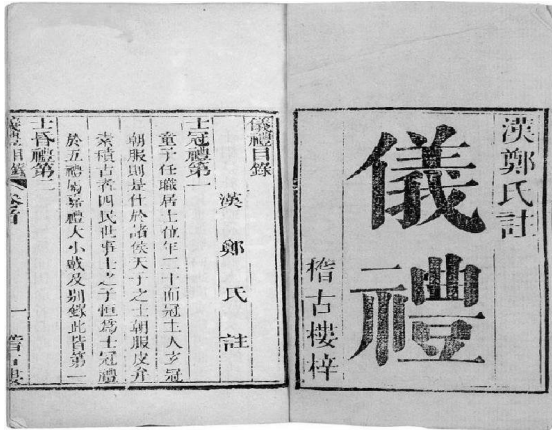 漢鄭氏註
儀禮
稽古樓梓
儀禮目錄
漢鄭氏註
士冠禮第一
童子任職居士位年二十而冠主人玄冠
朝服則是仕於諸侯天子之士朝服皮弁
素積古者四民世事士之子恒為士冠禮
於五禮屬嘉禮大小戴及別錄此皆第一
士昏禮第二
儀禮目錄
一